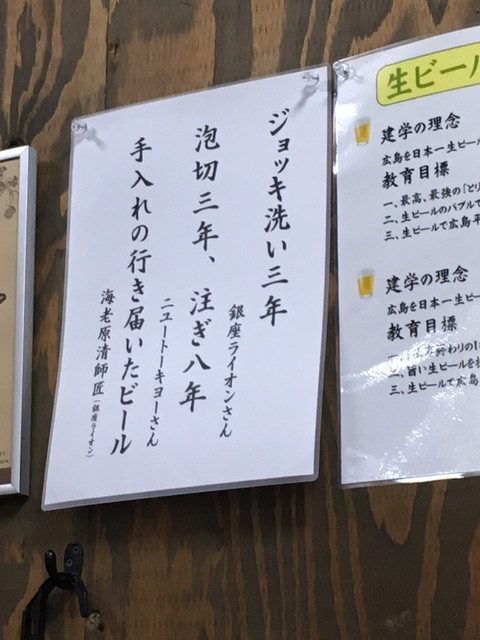 ジョッキ洗い三年
銀座ライオンさん
泡切三年、注ぎ八年
ニュートーキヨーさん
手入れの行き届いたビール
海老原清師匠（銀座ライオン）
生ビール
建学の理念
広島を日本一生ビー
教育目標
一、最高、最強の「とり
二、生ビールのバブルで
三、生ビールで広島平
建学の理念
広島を日本一生ビー
教育目標
終わりの
二、旨い生ビールを
三、生ビールで広島